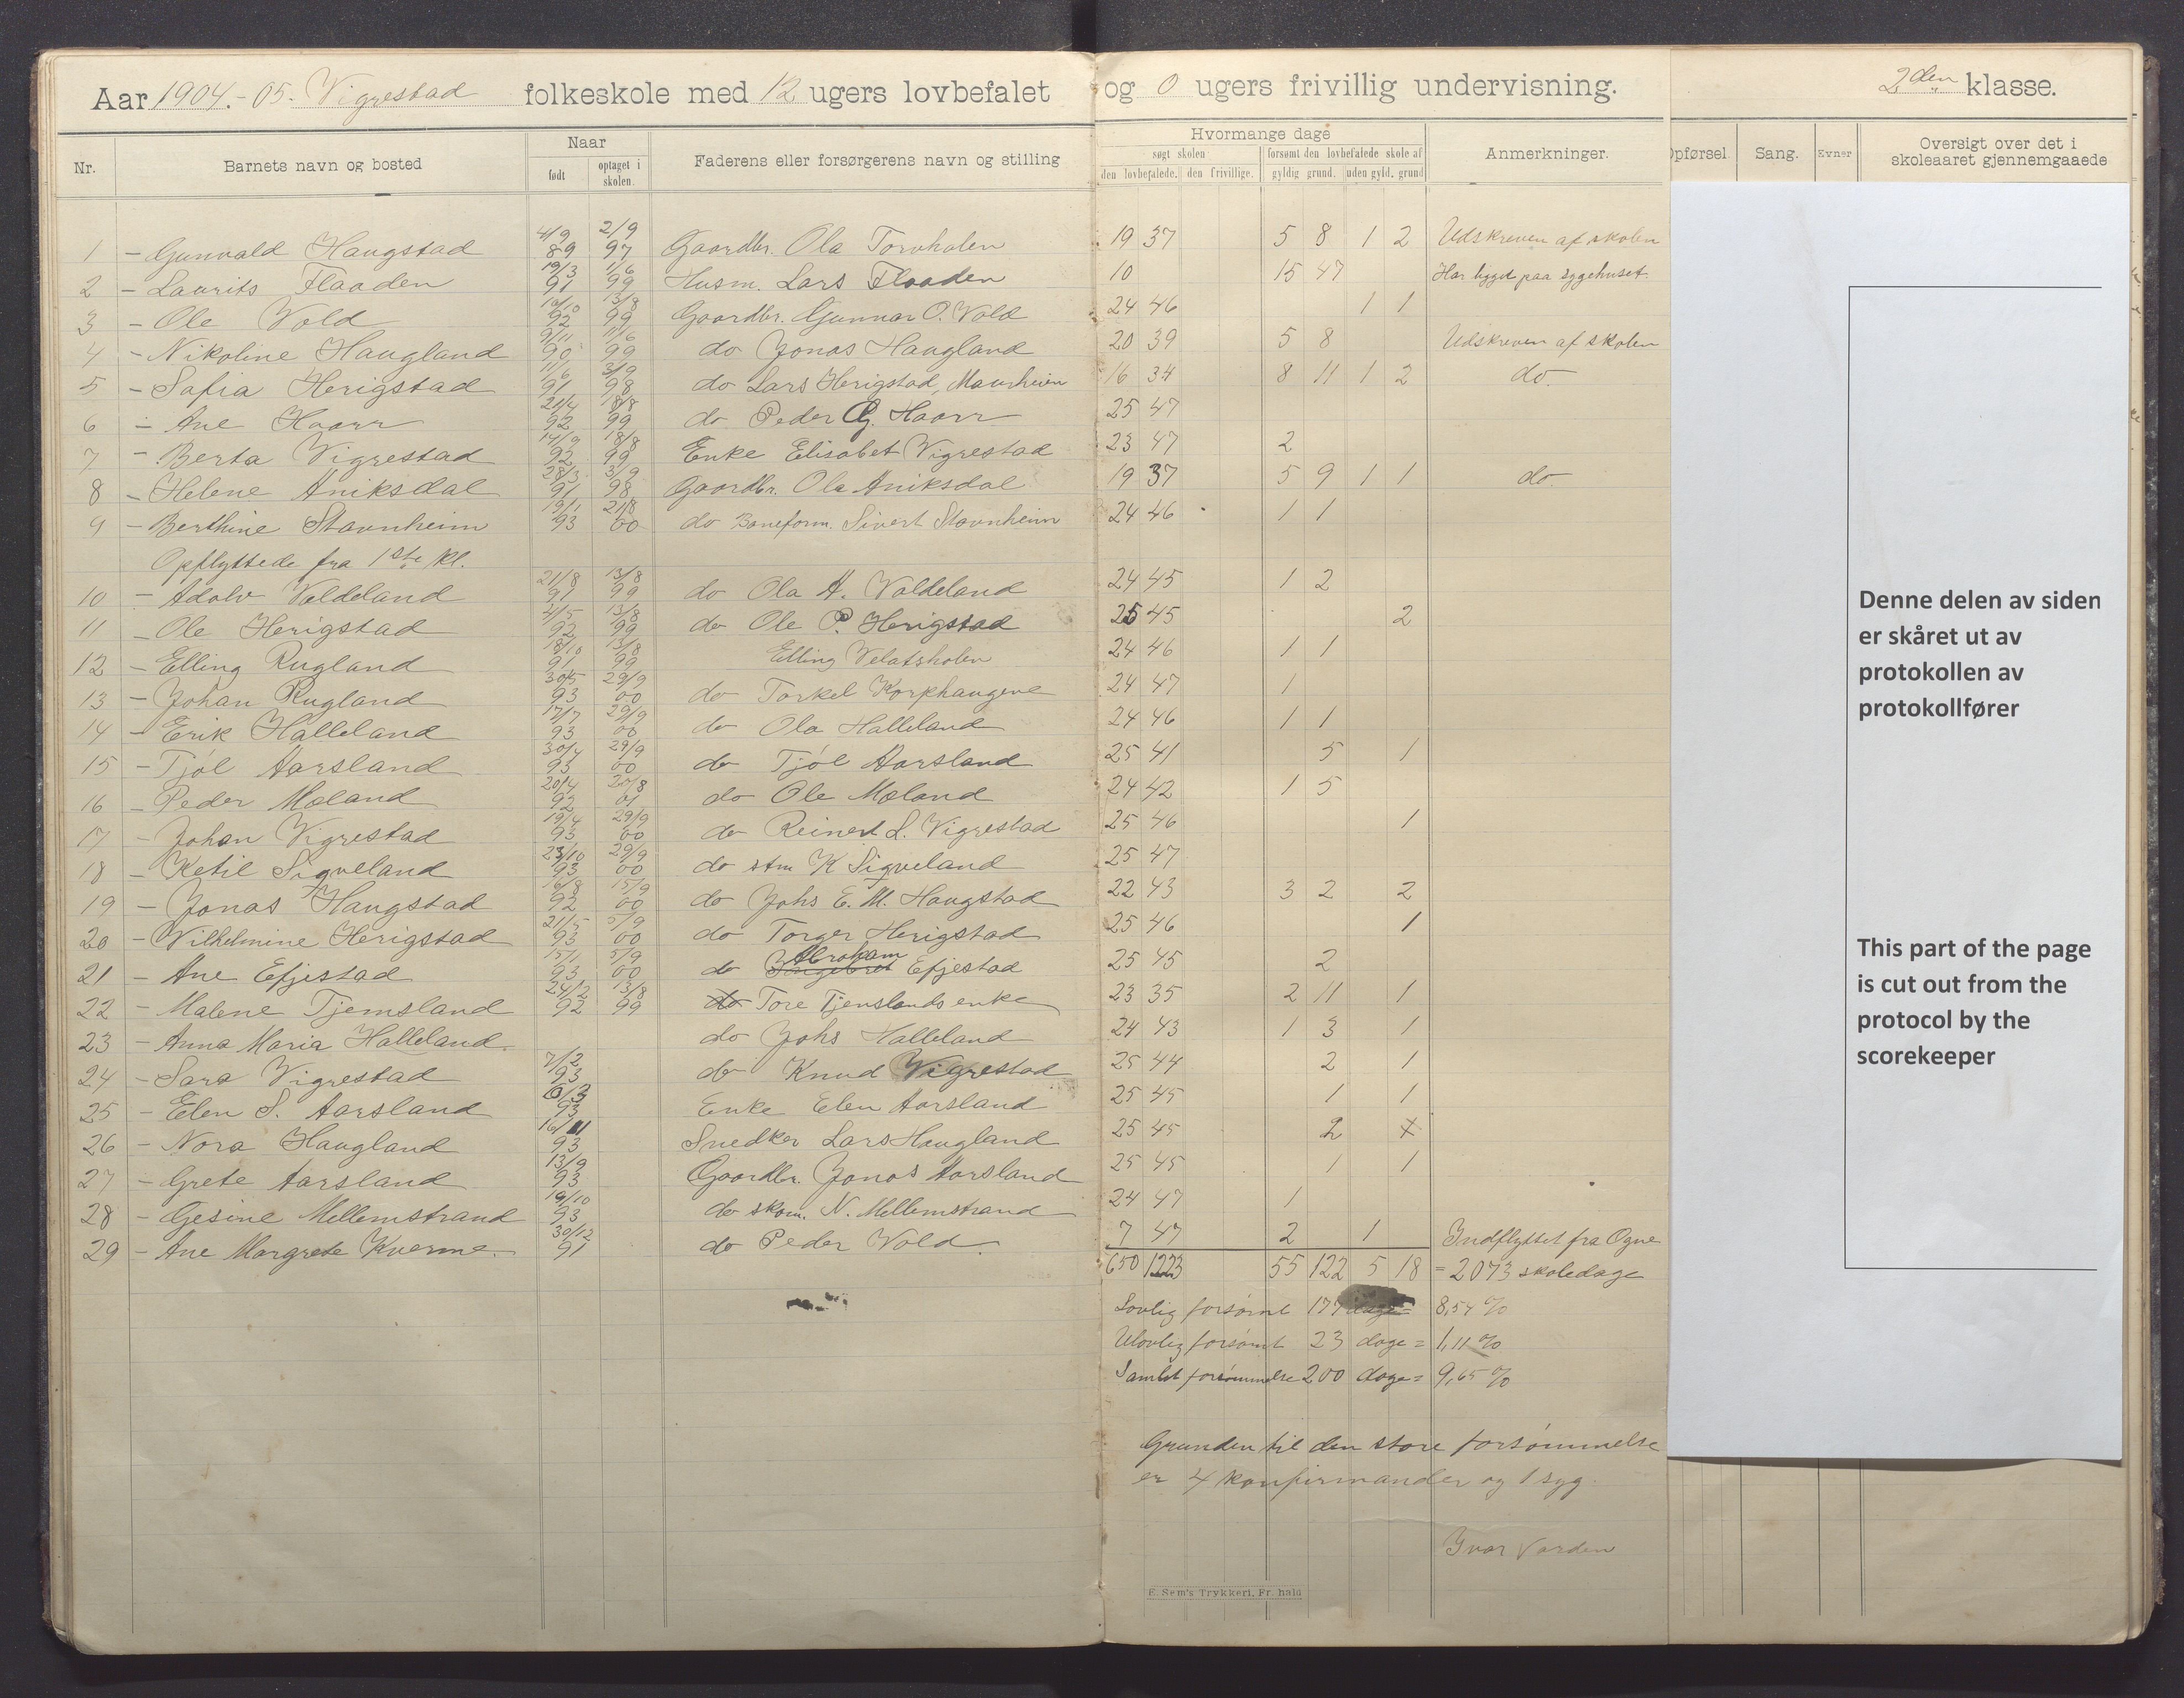 Aar 1904.-05. Vigrestad folkeskole med 12 ugers lovbefalet og 0 ugers frivillig undervisning. 2den klasse.
Nr. Barnets navn og bosted Naar født optaget i skolen. Faderens eller forsørgerens navn og stilling Hvormange dage søgt skolen den lovbefalede. den frivillige. forsømt den lovbefalede skole af gyldig grund. uden gyld. grund Anmerkninger. Opførsel. Sang. Evner Oversigt over det i skoleaaret gjennemgaaede
1 - Gunvald Haugstad 4/9 89 2/9 97 Gaardbr. Ola Torvholen 19 37 5 8 1 2 Udskreven af skolen
2 - Laurits Flaaden 19/3 91 1/6 99 Husm. Lars Flaaden 10 15 47 Har ligget paa sygehuset.
3 - Ole Vold 10/10 92 13/8 99 Gaardbr. Gunnar O. Vold 24 46 1 1
4 - Nikoline Haugland 9/11 90 11/6 99 do Jonas Haugland 20 39 5 8 Udskreven af skolen
5 - Sofia Herigstad 11/6 91 3/9 98 do Lars Herigstad, Maurheien 16 34 8 11 1 2 do.
6 - Ane Haarr 21/4 92 18/8 99 do Peder G. Haarr 25 47
7 - Berta Vigrestad 14/9 92 18/8 99 Enke Elisabet Vigrestad 23 47 2
8 - Helene Aniksdal 28/3 91 3/9 98 Gaardbr. Ola Aniksdal 19 37 5 9 1 1 do
9 - Berthine Stavnheim 19/1 93 21/8 00 do Baneform. Sivert Stavnheim 24 46 1 1
Opflyttede fra 1ste kl.
10 - Adolv Valdeland 21/8 91 13/8 99 do Ola A. Valdeland 24 45 1 2
11 - Ole Herigstad 4/5 92 13/8 99 do Ole P. Herigstad 25 45 2
12 - Elling Rugland 18/10 91 13/8 99 Elling Velatsholen 24 46 1 1
13 - Johan Rugland 30/5 93 29/9 00 do Torkel Korphaugene 24 47 1
14 - Erik Halleland 17/7 93 29/9 00 do Ola Halleland 24 46 1 1
15 - Tjøl Aarsland 30/4 93 29/9 00 do Tjøl Aarsland 25 41 5 1
16 - Peder Moland 20/4 92 20/8 01 do Ole Moland 24 42 1 5
17 - Johan Vigrestad 19/4 93 29/9 00 do Reinert L. Vigrestad 25 46 1
18 - Ketil Sigveland 23/10 93 29/9 00 do stm K Sigveland 25 47
19 - Jonas Haugstad 16/8 92 15/9 00 do Johs E. M. Haugstad 22 43 3 2 2
20 - Vilhelmine Herigstad 21/5 93 5/9 00 do Torger Herigstad 25 46 1
21 - Ane Efjestad 15/1 93 5/9 00 do Abraham Efjestad 25 45 2
22 - Malene Tjemsland 24/12 92 13/8 99 do Tore Tjemslands enke 23 35 2 11 1
23 - Anna Maria Halleland. do Johs Halleland 24 43 1 3 1
24 - Sara Vigrestad 7/2 93 do Knud Vigrestad 25 44 2 1
25 - Elen S. Aarsland 6/3 93 Enke Elen Aarsland 25 45 1 1
26 - Nora Haugland 16/11 93 Snedker Lars Haugland 25 45 2 +
27 - Grete Aarsland 13/9 93 Gaardbr. Jonas Aarsland 25 45 1 1
28 - Gesine Mellemstrand 19/10 93 do skom. N. Mellemstrand 24 47 1
29 - Ane Margrete Kverme. 30/12 91 do Peder Vold. 7 47 2 1 Indflyttet fra Ogne
650 1223 55 122 5 18 = 2073 skoledage
Lovlig forsømt 177 dage = 8,54 %
Ulovlig forsømt 23 dage = 1,11 %
Samlet forsømmelse 200 dage = 9,65 %
Grunden til den store forsømmelse
er 4 konfirmander og 1 syg.
Ivar Varden
E. Sem's Trykkeri, Fr.hald
Denne delen av siden
er skåret ut av
protokollen av
protokollfører
This part of the page
is cut out from the
protocol by the
scorekeeper